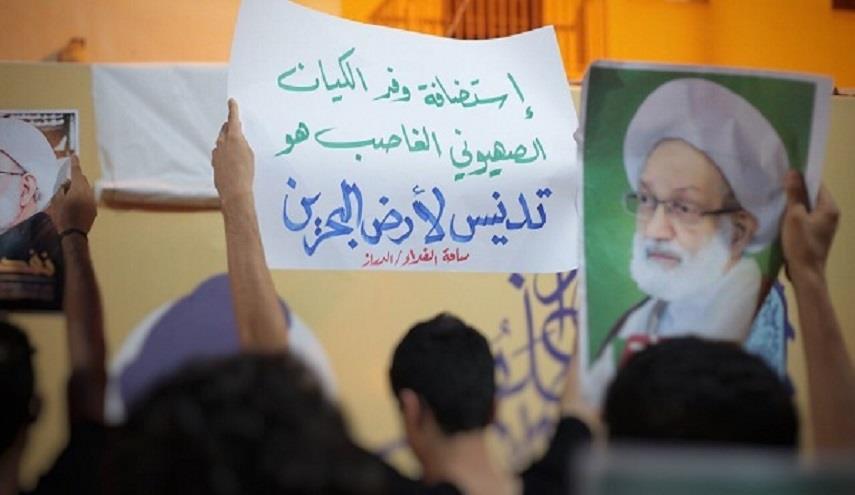 إستضافة وفد الكيان
الصهيوني الغاصب هو
تدنيس لأرض البحرين
ساحة الفداء/الدراز